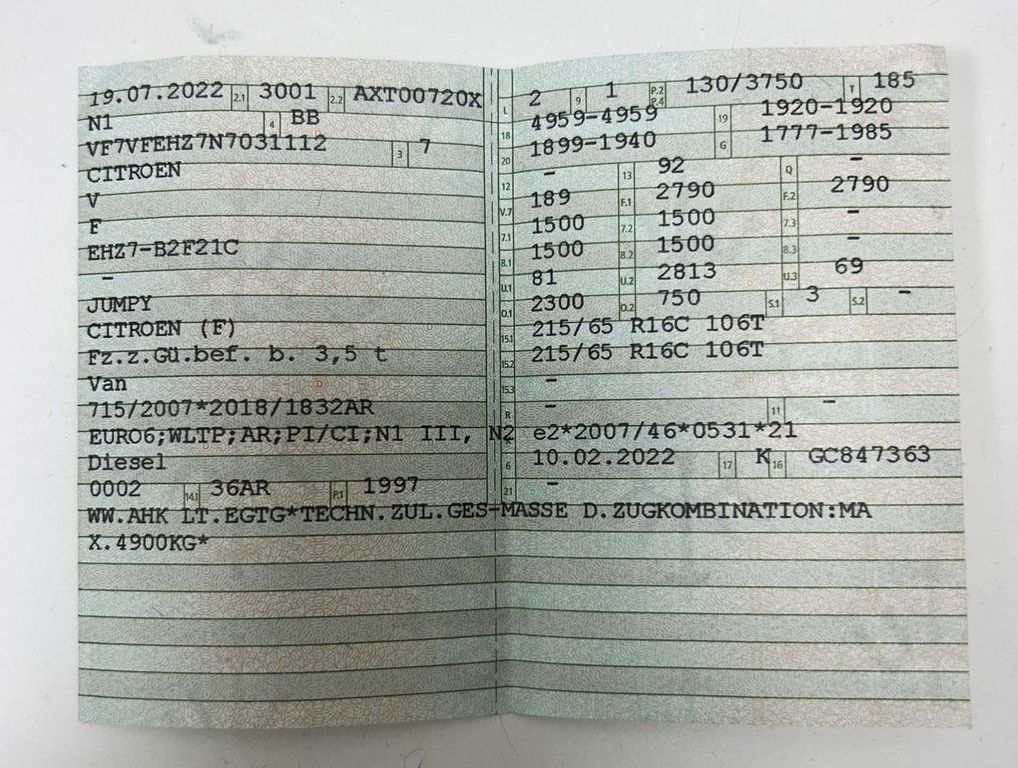 19.07.2022 2.1 3001 2.2 AXT00720X
N1 4 BB
VF7VFEHZ7N7031112 3 7
CITROEN
V
F
EHZ7-B2F21C
-
JUMPY
CITROEN (F)
Fz.z.Gü.bef. b. 3,5 t
Van
715/2007*2018/1832AR
EURO6;WLTP;AR;PI/CI;N1 III, N2
Diesel
0002 14.1 36AR P.1 1997
L 2 9 1 P.2 P.4 130/3750 T 185
18 4959-4959 19 1920-1920
20 1899-1940 G 1777-1985
12 - 13 92 Q -
V.7 189 F.1 2790 F.2 2790
7.1 1500 7.2 1500 7.3 -
8.1 1500 8.2 1500 8.3 -
U.1 81 U.2 2813 U.3 69
O.1 2300 O.2 750 S.1 3 S.2 -
15.1 215/65 R16C 106T
15.2 215/65 R16C 106T
15.3 -
R - 11 -
K e2*2007/46*0531*21
6 10.02.2022 17 K 16 GC847363
21 -
WW.AHK LT.EGTG*TECHN.ZUL.GES-MASSE D.ZUGKOMBINATION:MA
X.4900KG*